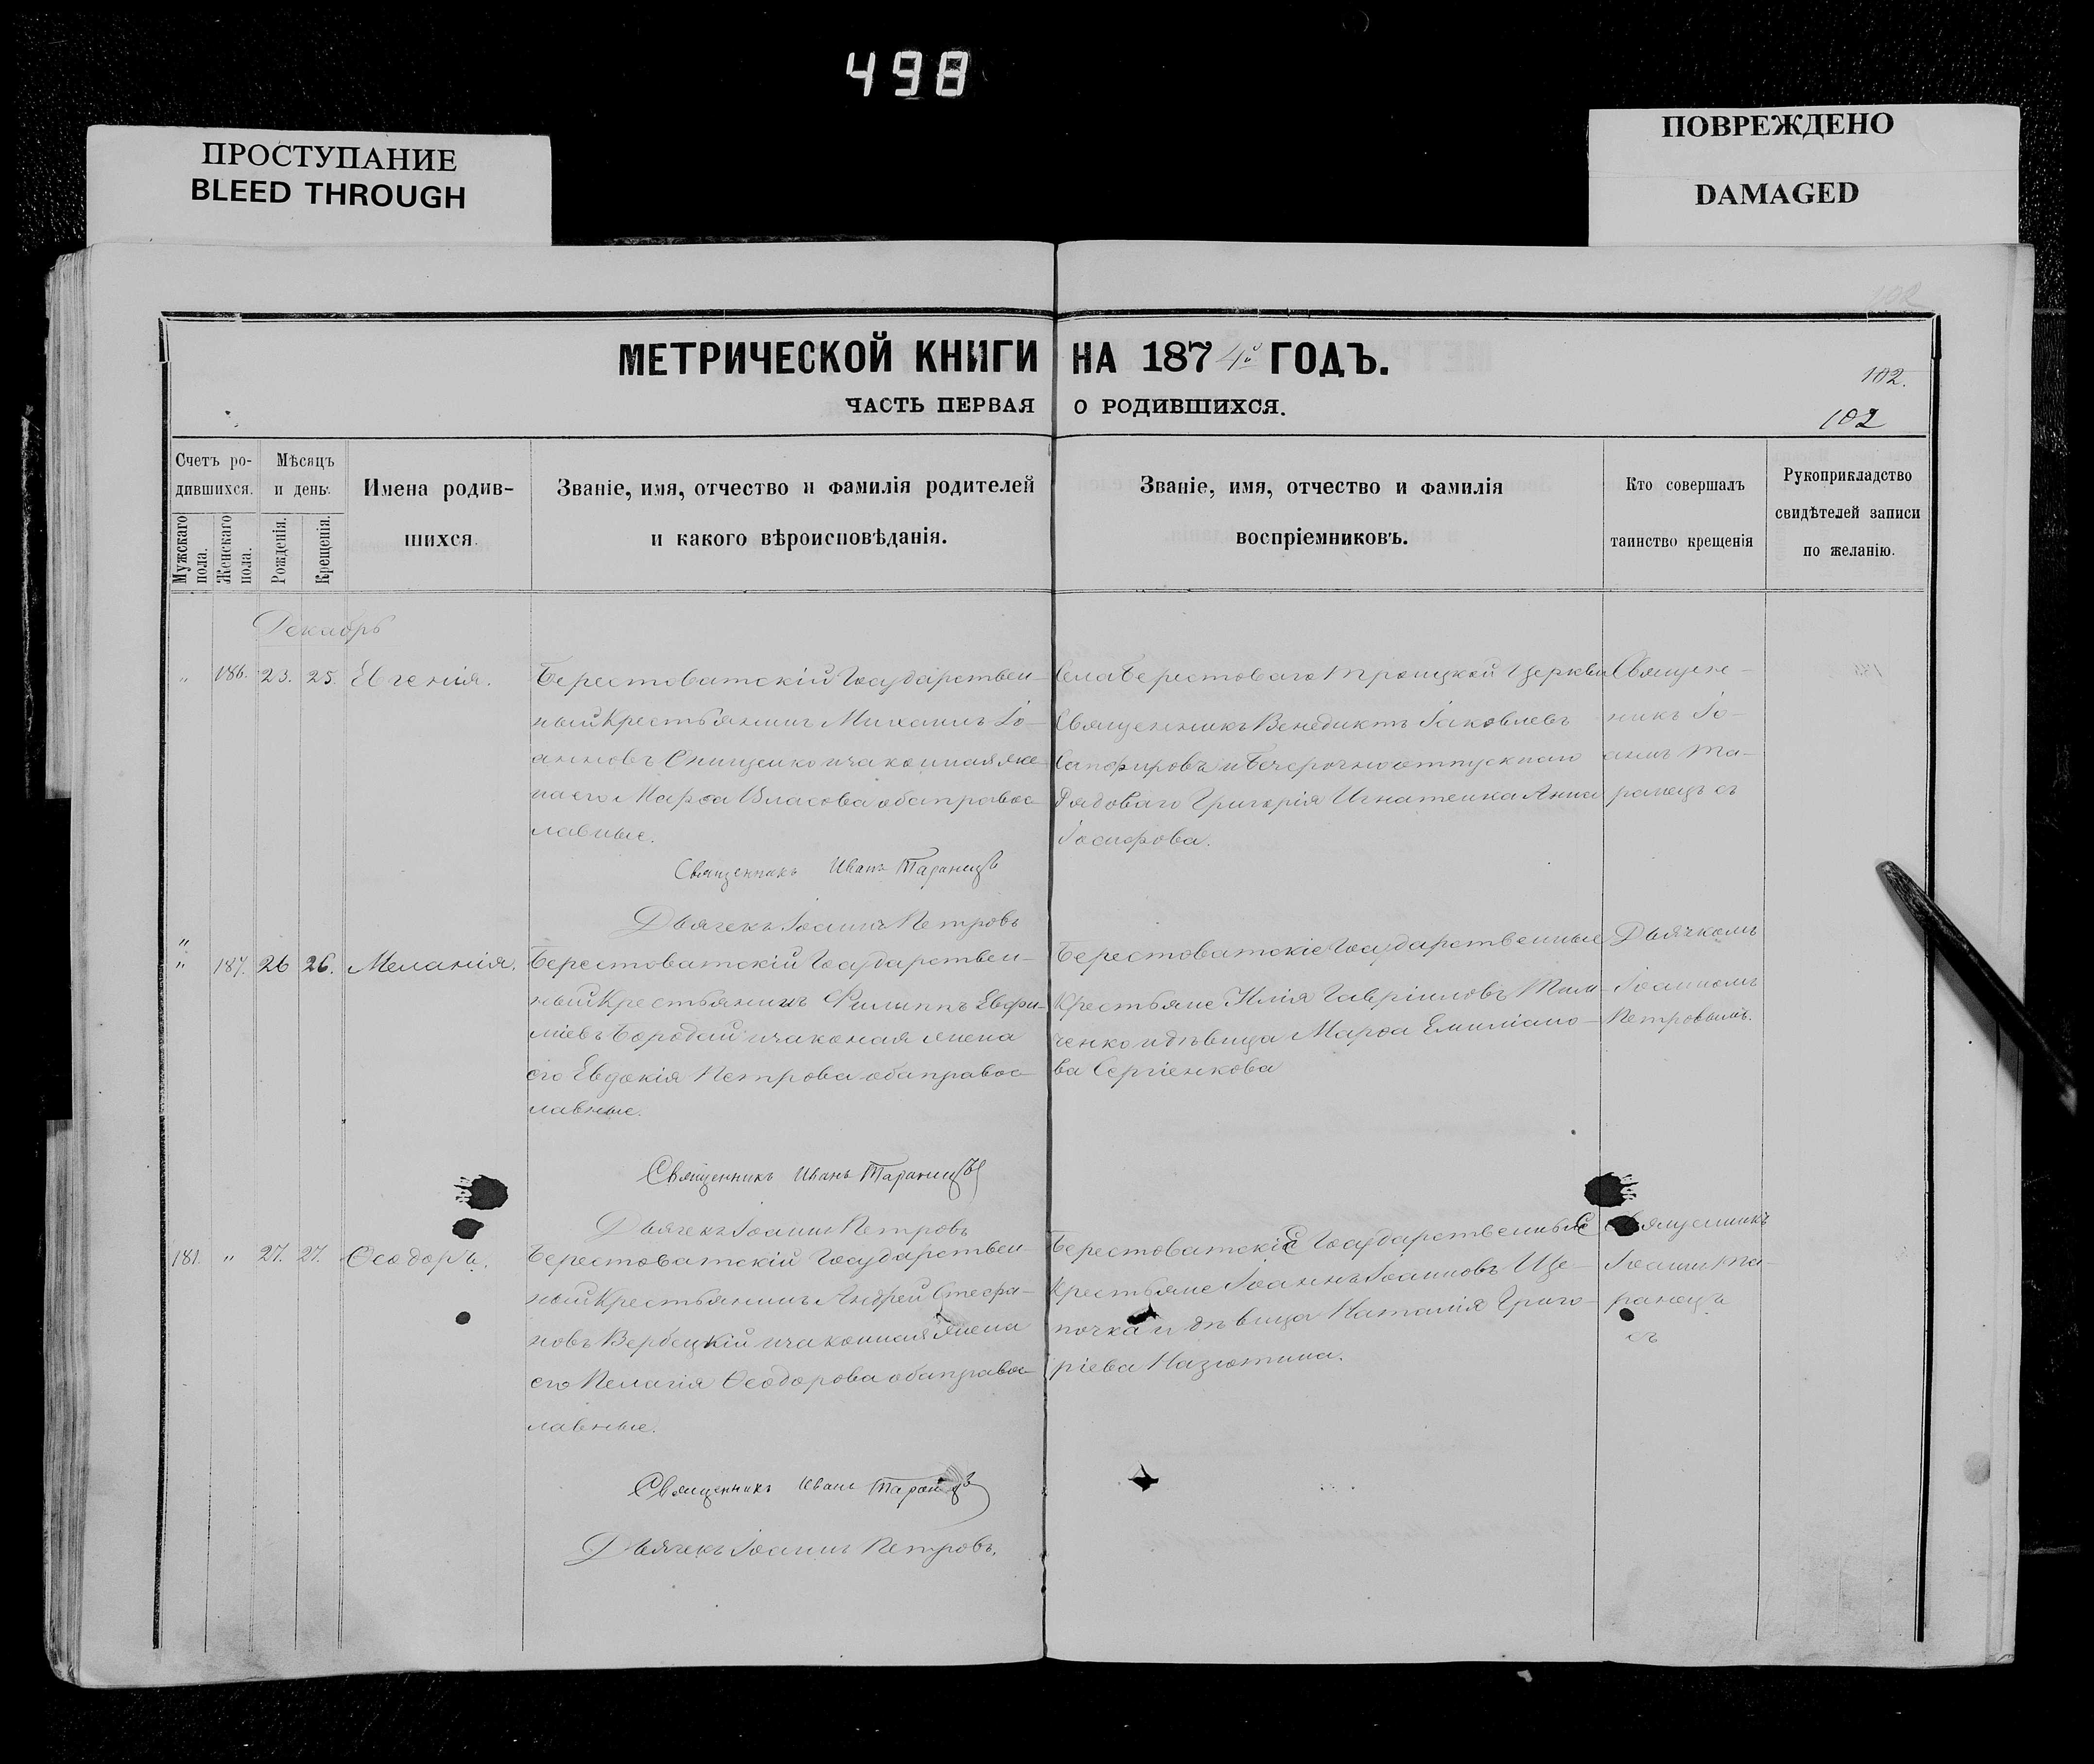 498
ПРОСТУПАНИЕ
BLEED THROUGH
ПОВРЕЖДЕНО
DAMAGED
МЕТРИЧЕСКОЙ КНИГИ НА 1874й ГОДЪ.
ЧАСТЬ ПЕРВАЯ О РОДИВШИХСЯ.
102.
102
Счетъ ро-
дившихся.
Мужскаго пола.
Женскаго пола.
Мѣсяцъ
и день.
Рожденія.
Крещенія.
Имена родив-
шихся.
Званіе, имя, отчество и фамилія родителей
и какого вѣроисповѣданія.
Званіе, имя, отчество и фамилія
воспріемниковъ.
Кто совершалъ
таинство крещенія
Рукоприкладство
свидѣтелей записи
по желанію.
Декабрь
" 186. 23. 25. Евгенія.
Берестоватскій Государствен-
ный Крестьянинъ Михаилъ Іо-
анновъ Онищенко и законная же-
на его Марѳа Власова оба правос-
лавные.
Священникъ Иванъ Таранецъ
Дьячекъ Іоаннъ Петровъ
Села Берестоваго Троицкой Церкви
Священникъ Венедиктъ Іаковлевъ
Сапфировъ и
Рядоваго Григорія Игнатенка Анна
Іосифова.
Священ-
никъ Іо-
аннъ Та-
ранецъ съ
" 187. 26 26. Меланія.
Берестоватскій Государствен-
ный Крестьянинъ Филиппъ Евфи-
міевъ Бородай и законая жена
его Евдокія Петрова оба правос-
лавные.
Священникъ Иванъ Таранецъ
Дьячекъ Іоаннъ Петровъ
Берестоватскіе Государственные
Крестьяне Илія Гавріиловъ Тим-
ченко и дѣвица Марѳа Емиліано-
ва Сергіенкова
Дьячкомъ
Іоанномъ
Петровымъ.
181. " 27. 27. Ѳеодоръ.
Берестоватскій Государствен-
ный Крестьянинъ Андрей Стефа-
новъ Вербецкій и законная жена
его Пелагія Ѳеодорова оба правос-
лавные.
Священникъ Иванъ Таранецъ
Дьячекъ Іоаннъ Петровъ.
Берестоватскіе Государственные
Крестьяне Іоаннъ Іоанновъ Ще-
почка и дѣвица Наталія Григо-
ріева Назютина.
Священникъ
Іоаннъ Та-
ранецъ
съ